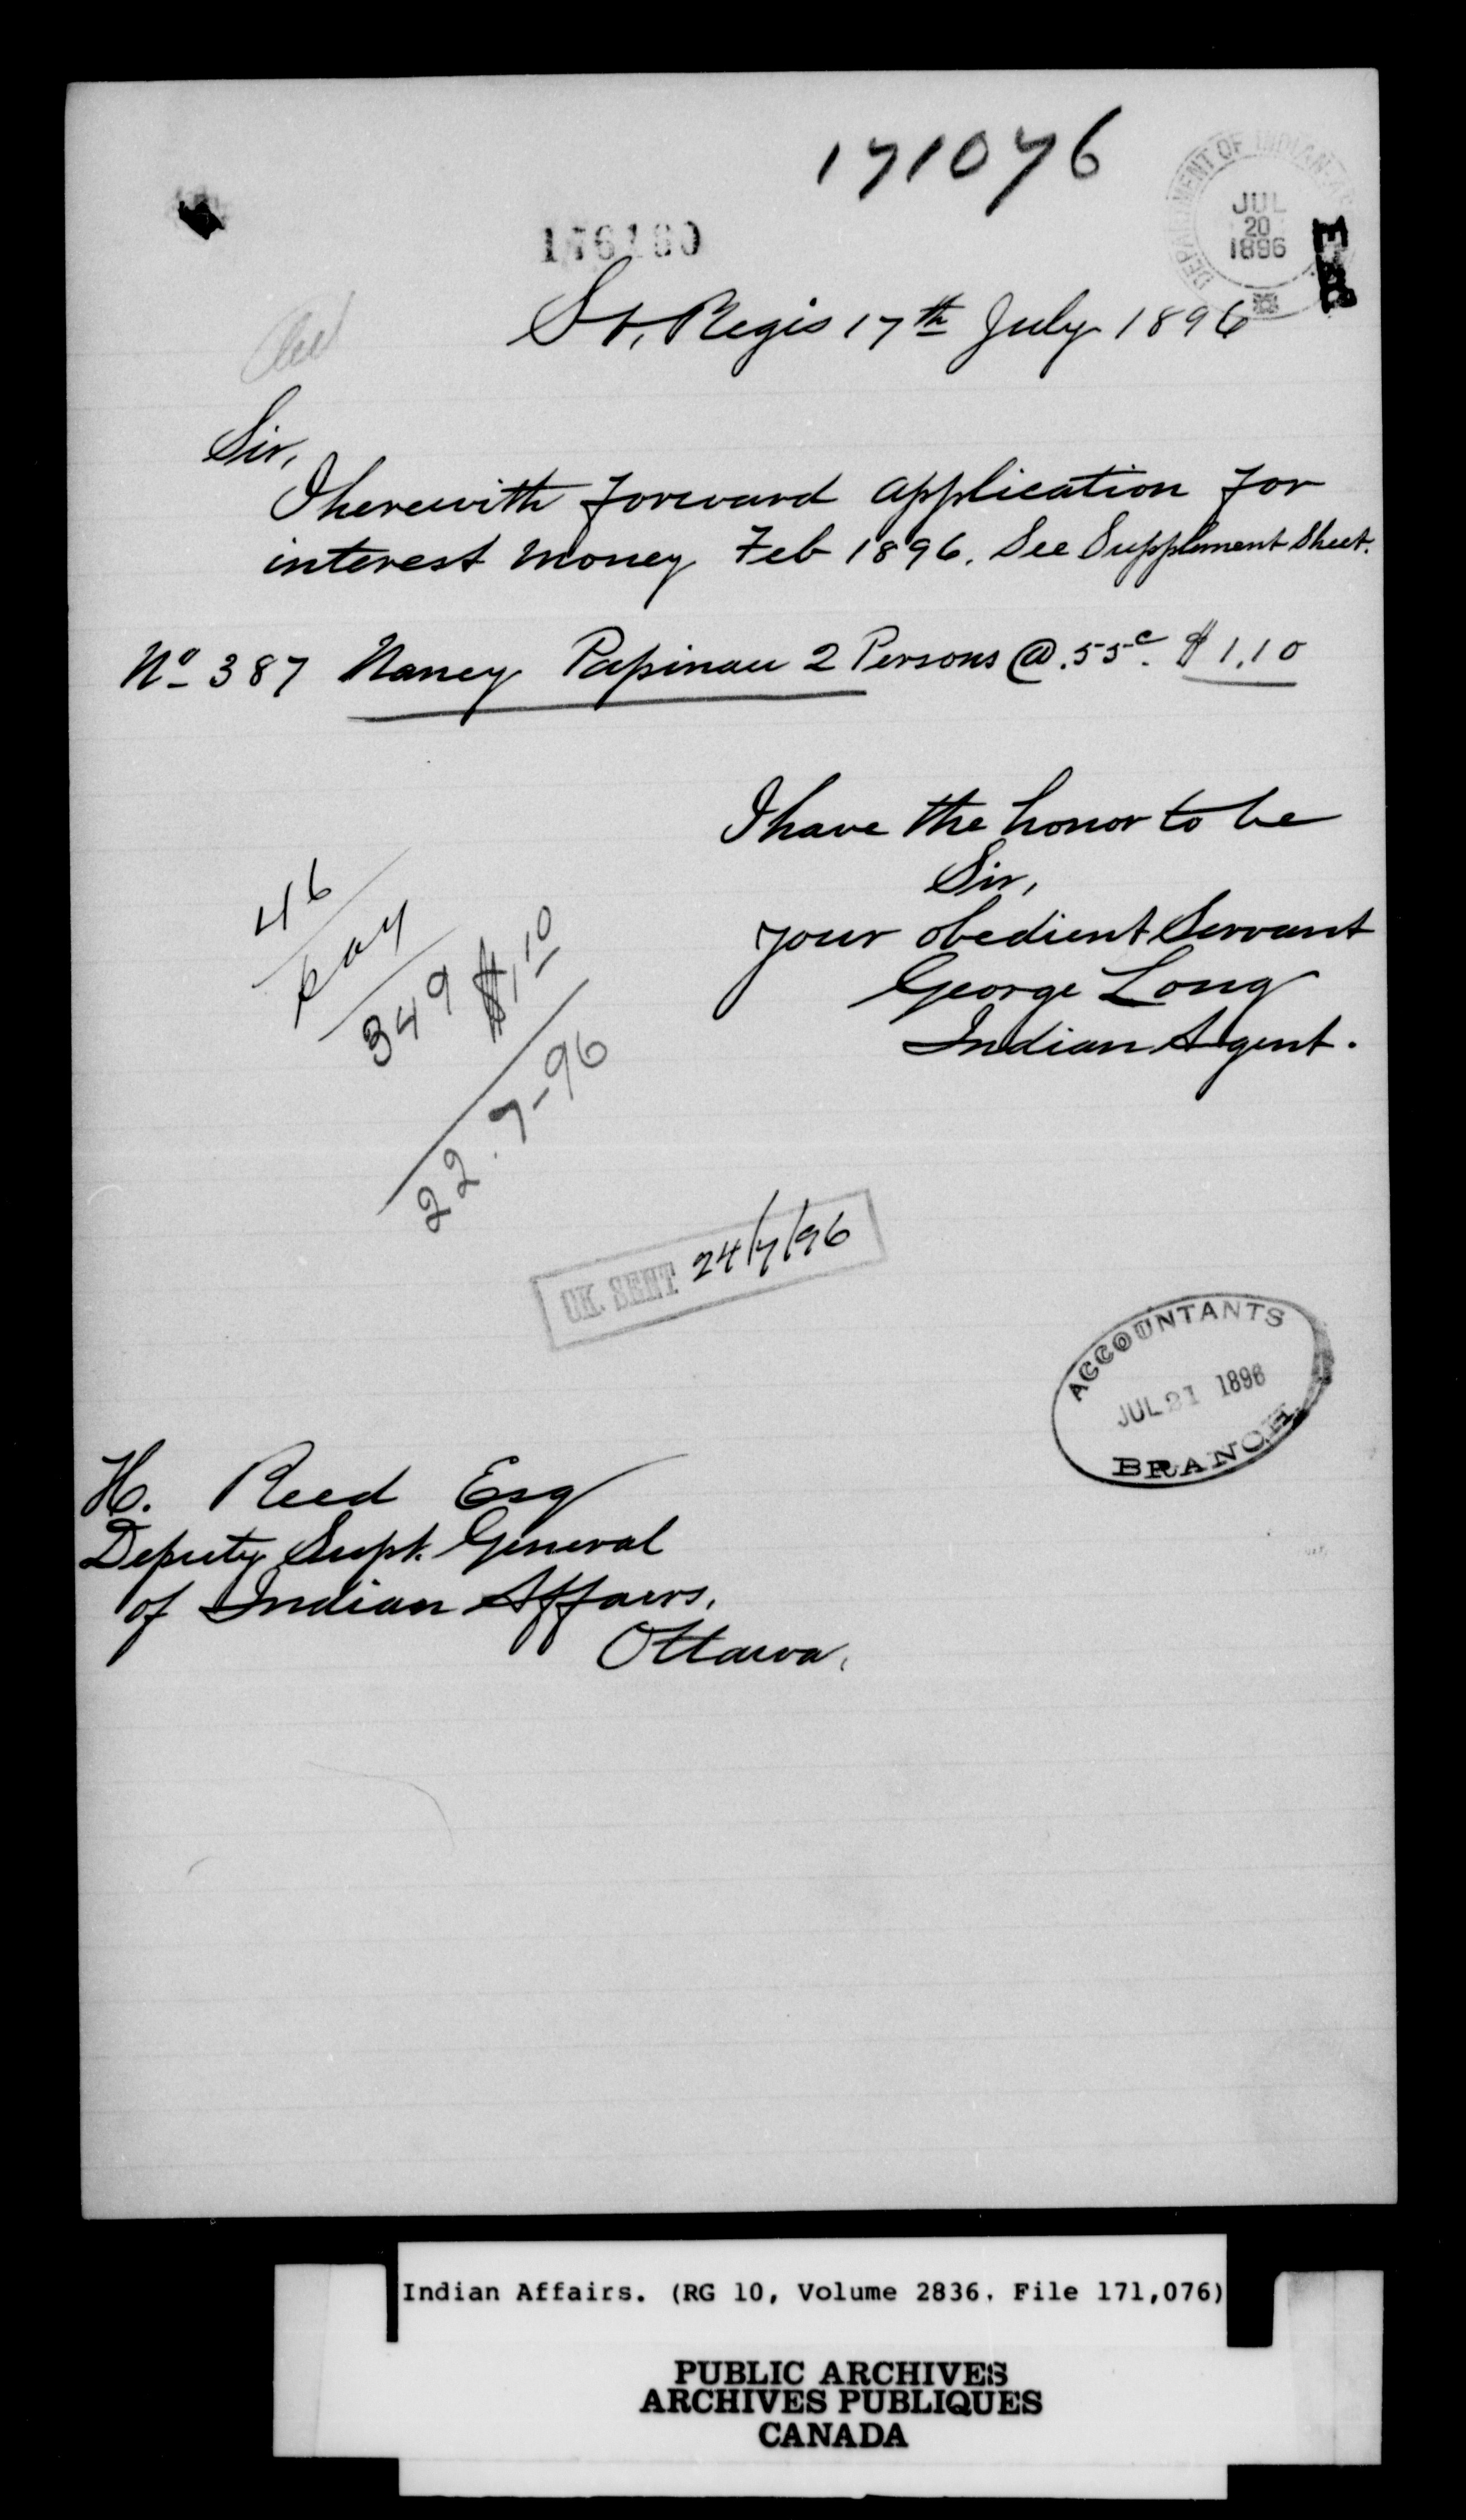 171076
DEPARTMENT OF INDIAN
JUL
20
1896
St. Regis 17th July 1896
Sir,
I herewith forward application for
interest money Feb 1896. See Supplement Sheet.
No 387 Nancy Papinau 2 Persons @ .55c. $1.10
I have the honor to be
Sir,
your obedient Servant
George Long
Indian Agent.
46
Pay
349 $1.10
22.7-96
CK. SENT 24/7/96
ACCOUNTANTS
JUL 21 1896
BRANCH
H. Reed Esq
Deputy Supt. General
of Indian Affairs.
Ottawa.
Indian Affairs. (RG 10, Volume 2836, File 171,076)
PUBLIC ARCHIVES
ARCHIVES PUBLIQUES
CANADA